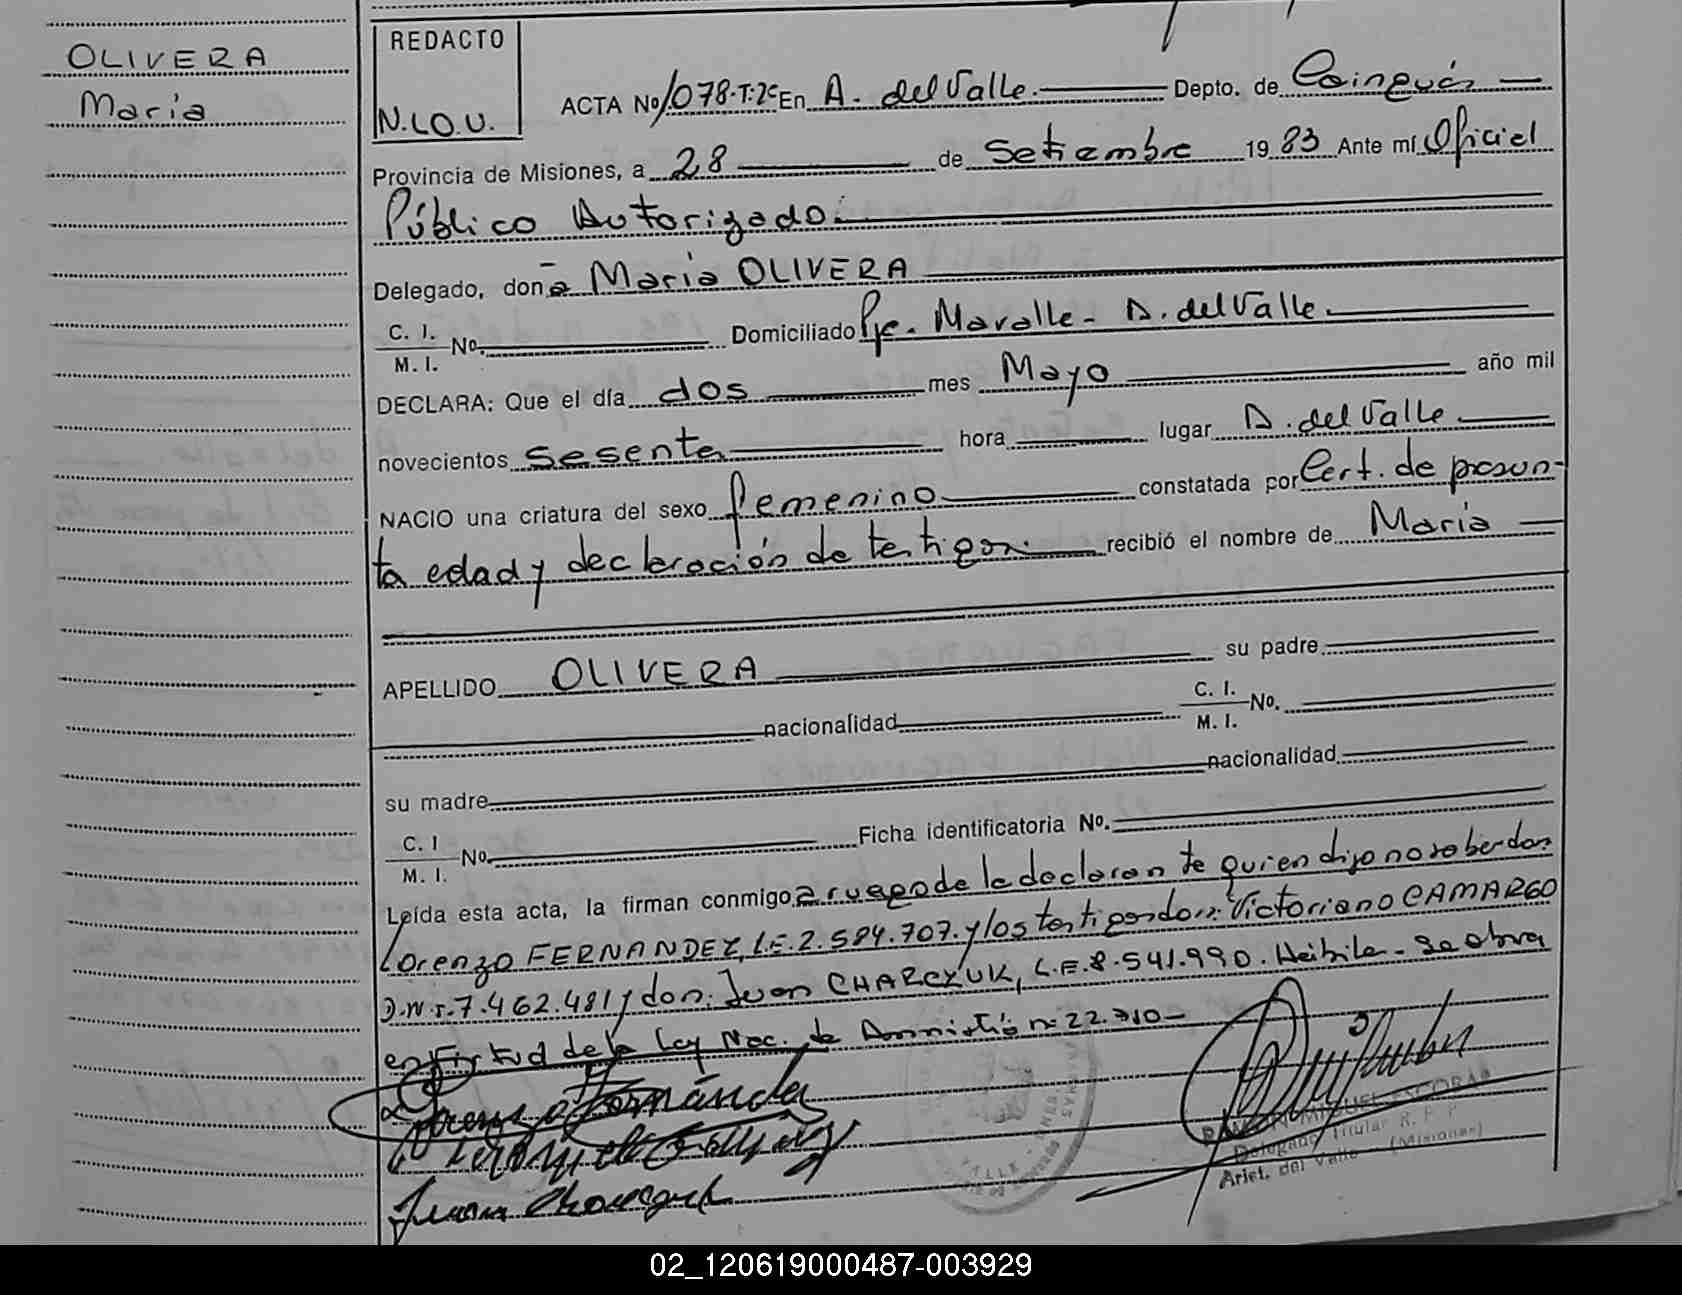 OLIVERA
María
REDACTO
N.I.O.U.
ACTA No 1078-T:2º En A. del Valle. Depto. de Cainguás
Provincia de Misiones, a 28 de Setiembre 19 83 Ante mí Oficiel
Público Autorizado.
Delegado, don a María OLIVERA
C. I.
M. I. No. Domiciliado Pje. Maralle - A. del Valle.
DECLARA: Que el día dos mes Mayo año mil
novecientos sesenta hora lugar A. del Valle
NACIO una criatura del sexo femenino constatada por Cert. de presun-
ta edad y declaración de testigos. recibió el nombre de María
APELLIDO OLIVERA su padre
nacionalidad C. I. M. I. No.
su madre nacionalidad
C. I M. I. No. Ficha identificatoria No.
Leída esta acta, la firman conmigo a ruego de la declarante quien dijo no saber don
Lorenzo FERNANDEZ, L.E. 2.584.707. y los testigos don: Victoriano CAMARGO
D.N.I. 7.462.481 y don: Juan CHARCZUK, L.E. 8.541.990. Heibile - se obra
en virtud de la Ley Nac. de Amnistía nº 22.
Lorenzo Fernández
Juan
RAMON MIGUEL ESCOBAR
Delegado Titular R. P. P.
Arist. del Valle - (Misiones)
02_120619000487-003929